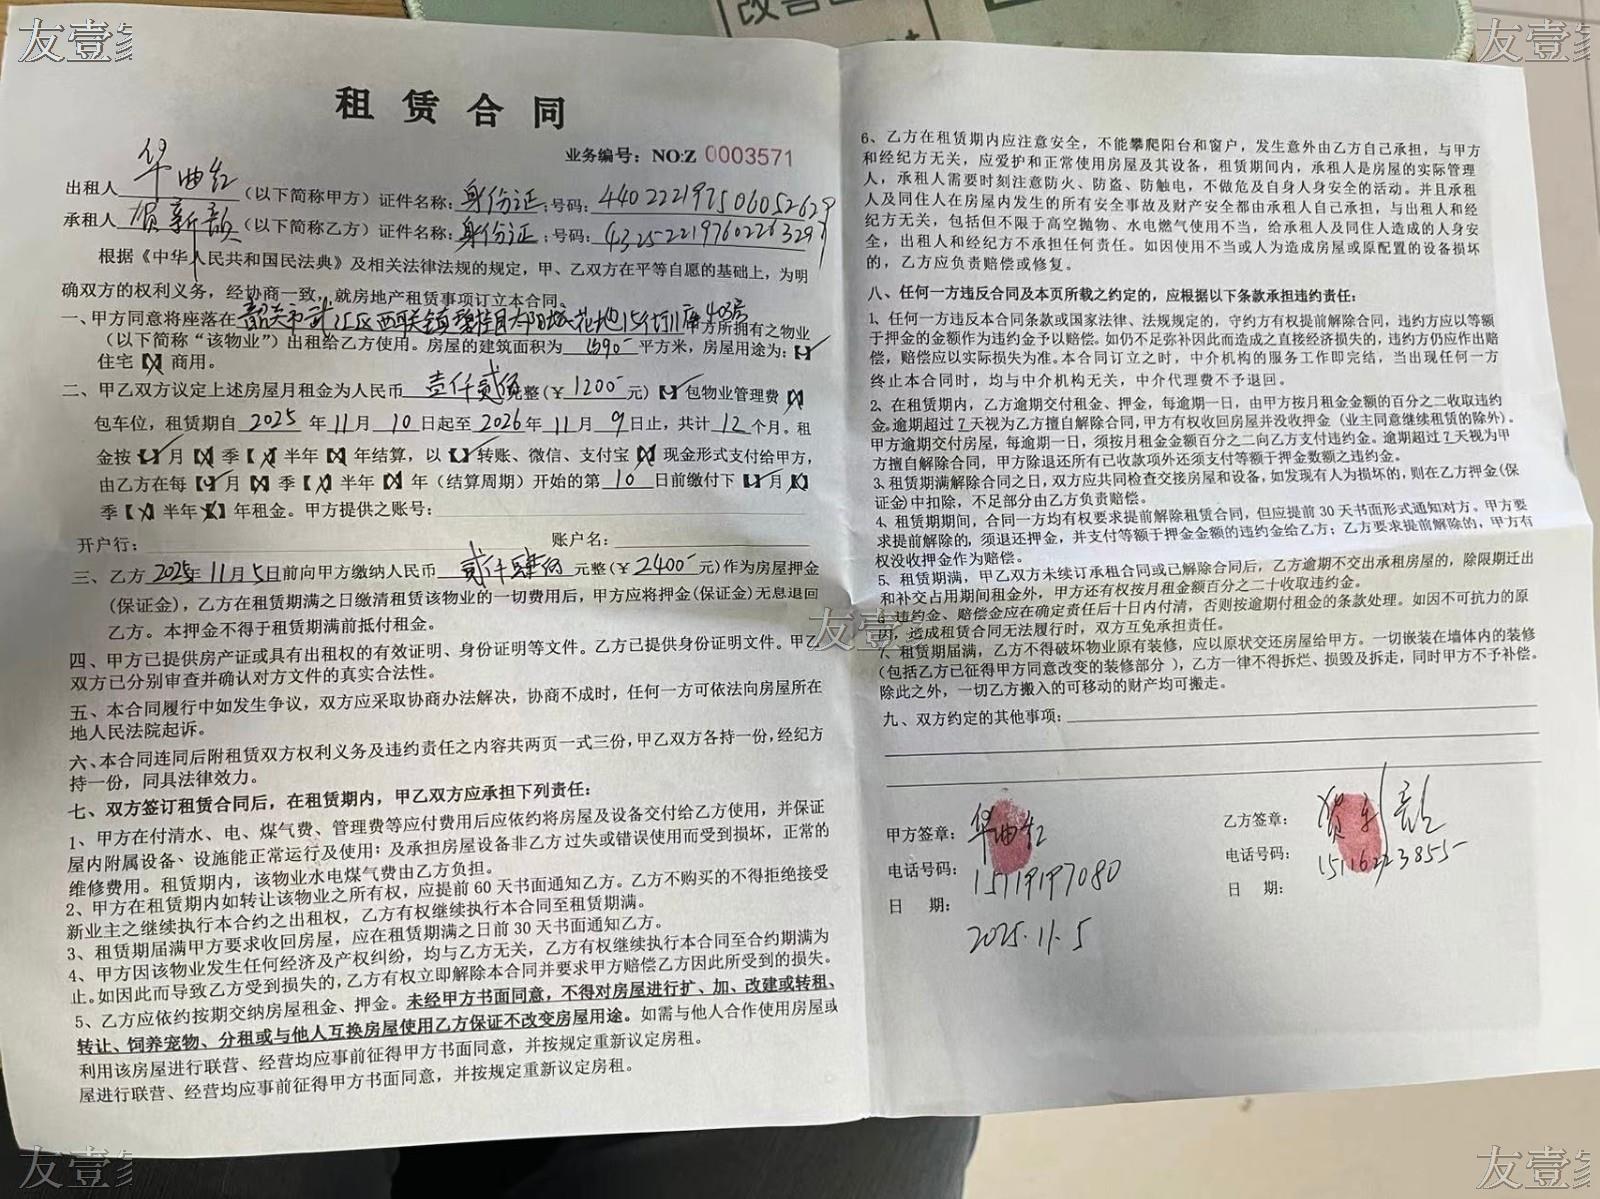 友壹家
友壹家
改善
租赁合同
业务编号：NO:Z 0003571
出租人 华曲红 （以下简称甲方）证件名称：身份证；号码：
承租人 贺新 （以下简称乙方）证件名称：身份证；号码：
根据《中华人民共和国民法典》及相关法律法规的规定，甲、乙双方在平等自愿的基础上，为明
确双方的权利义务，经协商一致，就房地产租赁事项订立本合同。
一、甲方同意将座落在韶关市武江区西联镇碧桂园太阳城花地15街11座403房 甲方所拥有之物业
（以下简称“该物业”）出租给乙方使用。房屋的建筑面积为 平方米，房屋用途为：【✓】
住宅【X】商用。
二、甲乙双方议定上述房屋月租金为人民币 壹仟贰佰 整（￥1200- 元）【✓】包物业管理费【X】
包车位，租赁期自 2025 年 11 月 10 日起至 2026 年 11 月 9 日止，共计 12 个月。租
金按【✓】月【X】季【X】半年【X】年结算，以【✓】转账、微信、支付宝【X】现金形式支付给甲方，
由乙方在每【✓】月【X】季【X】半年【X】年（结算周期）开始的第 10 日前缴付下【✓】月【X】
季【X】半年【X】年租金。甲方提供之账号：
开户行： 账户名：
三、乙方 2025年11月5日前向甲方缴纳人民币 贰仟肆佰 元整（￥2400- 元）作为房屋押金
（保证金），乙方在租赁期满之日缴清租赁该物业的一切费用后，甲方应将押金（保证金）无息退回
乙方。本押金不得于租赁期满前抵付租金。
四、甲方已提供房产证或具有出租权的有效证明、身份证明等文件。乙方已提供身份证明文件。甲乙
双方已分别审查并确认对方文件的真实合法性。
五、本合同履行中如发生争议，双方应采取协商办法解决，协商不成时，任何一方可依法向房屋所在
地人民法院起诉。
六、本合同连同后附租赁双方权利义务及违约责任之内容共两页一式三份，甲乙双方各持一份，经纪方
持一份，同具法律效力。
七、双方签订租赁合同后，在租赁期内，甲乙双方应承担下列责任：
1、甲方在付清水、电、煤气费、管理费等应付费用后应依约将房屋及设备交付给乙方使用，并保证
屋内附属设备、设施能正常运行及使用；及承担房屋设备非乙方过失或错误使用而受到损坏，正常的
维修费用。租赁期内，该物业水电煤气费由乙方负担。
2、甲方在租赁期内如转让该物业之所有权，应提前60天书面通知乙方。乙方不购买的不得拒绝接受
新业主之继续执行本合约之出租权，乙方有权继续执行本合同至租赁期满。
3、租赁期届满甲方要求收回房屋，应在租赁期满之日前30天书面通知乙方。
4、甲方因该物业发生任何经济及产权纠纷，均与乙方无关，乙方有权继续执行本合同至合约期满为
止。如因此而导致乙方受到损失的，乙方有权立即解除本合同并要求甲方赔偿乙方因此所受到的损失。
5、乙方应依约按期交纳房屋租金、押金。未经甲方书面同意，不得对房屋进行扩、加、改建或转租、
转让、饲养宠物、分租或与他人互换房屋使用乙方保证不改变房屋用途。如需与他人合作使用房屋或
利用该房屋进行联营、经营均应事前征得甲方书面同意，并按规定重新议定房租。
屋进行联营、经营均应事前征得甲方书面同意，并按规定重新议定房租。
6、乙方在租赁期内应注意安全，不能攀爬阳台和窗户，发生意外由乙方自己承担，与甲方
和经纪方无关，应爱护和正常使用房屋及其设备，租赁期间内，承租人是房屋的实际管理
人，承租人需要时刻注意防火、防盗、防触电，不做危及自身人身安全的活动。并且承租
人及同住人在房屋内发生的所有安全事故及财产安全都由承租人自己承担，与出租人和经
纪方无关，包括但不限于高空抛物、水电燃气使用不当，给承租人及同住人造成的人身安
全，出租人和经纪方不承担任何责任。如因使用不当或人为造成房屋或原配置的设备损坏
的，乙方应负责赔偿或修复。
八、任何一方违反合同及本页所载之约定的，应根据以下条款承担违约责任：
1、任何一方违反本合同条款或国家法律、法规规定的，守约方有权提前解除合同，违约方应以等额
于押金的金额作为违约金予以赔偿。如仍不足弥补因此而造成之直接经济损失的，违约方仍应作出赔
偿，赔偿应以实际损失为准。本合同订立之时，中介机构的服务工作即完结，当出现任何一方
终止本合同时，均与中介机构无关，中介代理费不予退回。
2、在租赁期内，乙方逾期交付租金、押金，每逾期一日，由甲方按月租金金额的百分之二收取违约
金。逾期超过7天视为乙方擅自解除合同，甲方有权收回房屋并没收押金（业主同意继续租赁的除外）。
甲方逾期交付房屋，每逾期一日，须按月租金金额百分之二向乙方支付违约金。逾期超过7天视为甲
方擅自解除合同，甲方除退还所有已收款项外还须支付等额于押金数额之违约金。
3、租赁期满解除合同之日，双方应共同检查交接房屋和设备，如发现有人为损坏的，则在乙方押金（保
证金）中扣除，不足部分由乙方负责赔偿。
4、租赁期期间，合同一方均有权要求提前解除租赁合同，但应提前30天书面形式通知对方。甲方要
求提前解除的，须退还押金，并支付等额于押金金额的违约金给乙方；乙方要求提前解除的，甲方有
权没收押金作为赔偿。
5、租赁期满，甲乙双方未续订承租合同或已解除合同后，乙方逾期不交出承租房屋的，除限期迁出
和补交占用期间租金外，甲方还有权按月租金额百分之二十收取违约金。
6、违约金、赔偿金应在确定责任后十日内付清，否则按逾期付租金的条款处理。如因不可抗力的原
因，造成租赁合同无法履行时，双方互免承担责任。
7、租赁期届满，乙方不得破坏物业原有装修，应以原状交还房屋给甲方。一切嵌装在墙体内的装修
（包括乙方已征得甲方同意改变的装修部分），乙方一律不得拆烂、损毁及拆走，同时甲方不予补偿。
除此之外，一切乙方搬入的可移动的财产均可搬走。
九、双方约定的其他事项：
甲方签章：华曲红
电话号码：15119197080
日 期：2025.11.5
乙方签章：贺新
电话号码：15116223855
日 期：
友壹
友壹家
友壹家